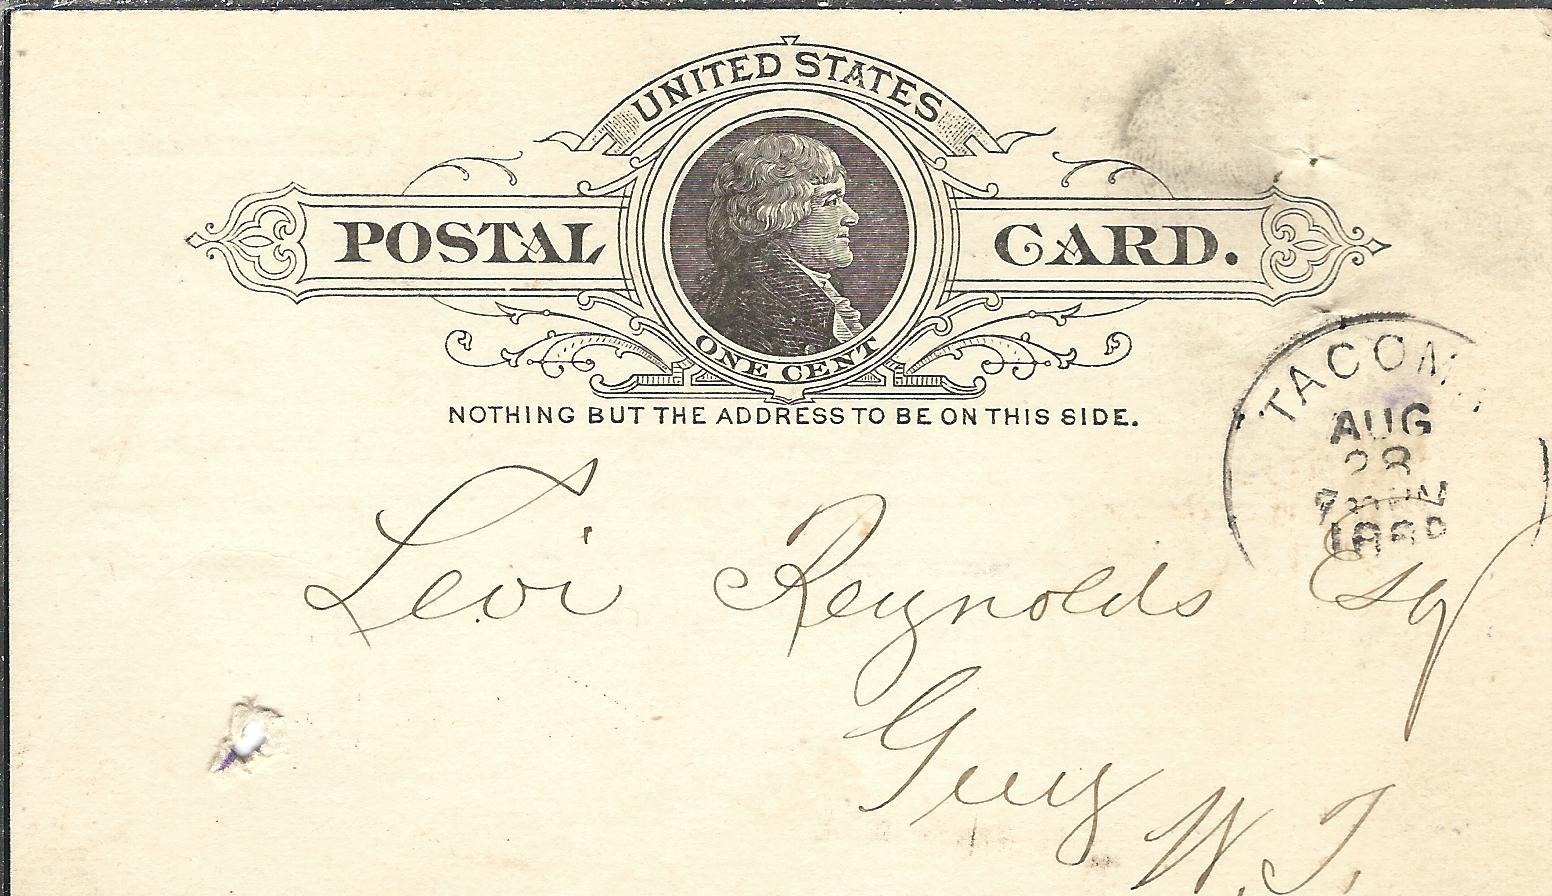 UNITED STATES
POSTAL CARD.
ONE CENT
NOTHING BUT THE ADDRESS TO BE ON THIS SIDE.
TACOM
AUG
28
Levi Reynolds Esq
Guy
W. T.